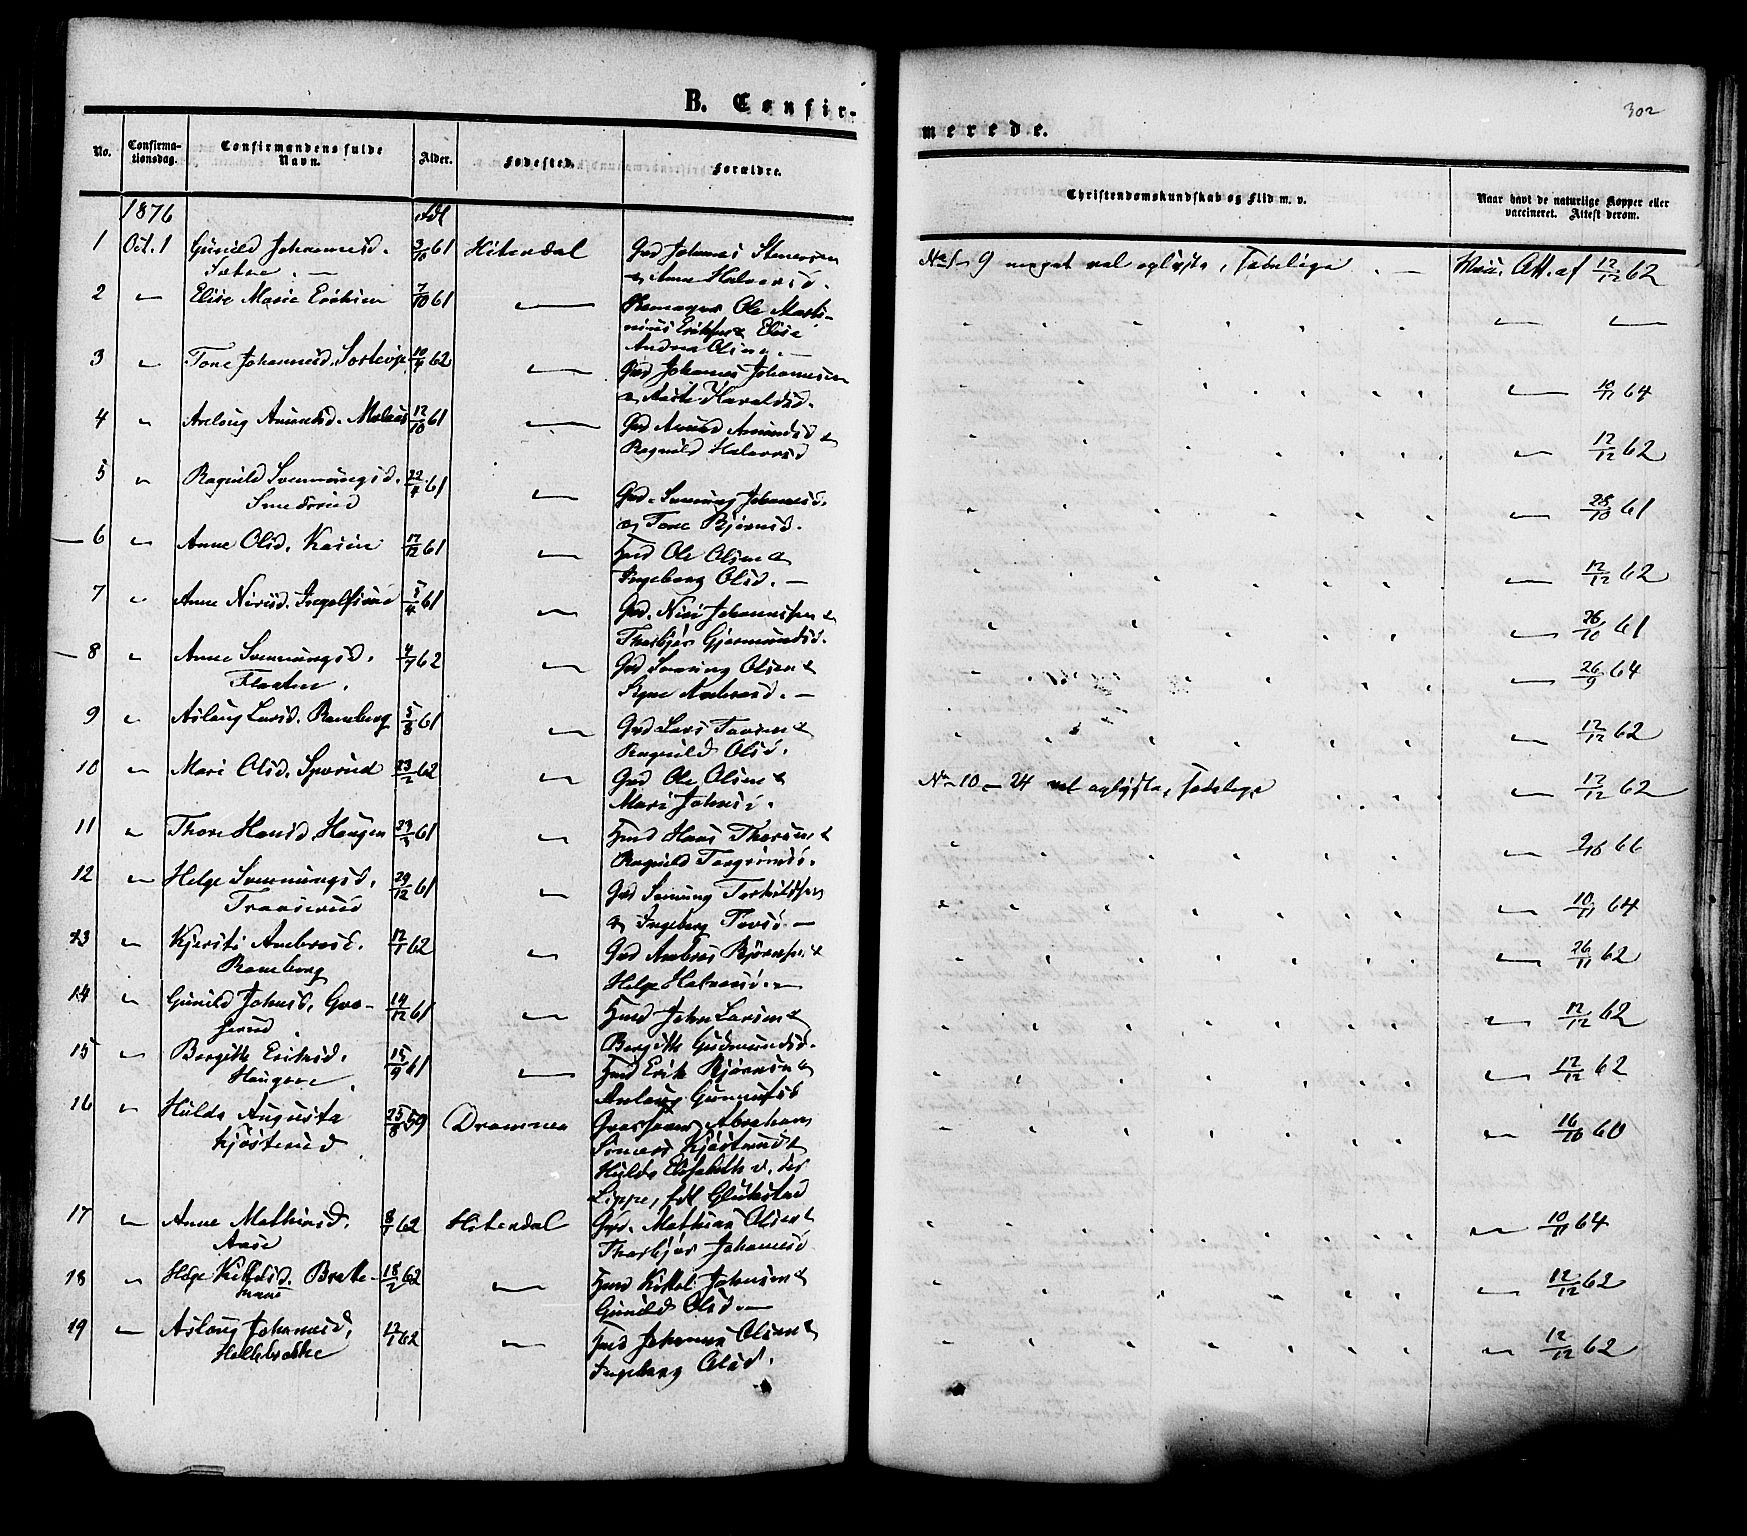 B. Confir-
No.
Confirma-
tionsdag.
Confirmandens fulde
Navn.
Alder.
Fødested.
Forældre.
1876
fdt
1 Oct. 1 Gunild Johannesd. 3/10 61 Hiterdal Grd Johannes Stenersen
Sætre. — & Anne Halvorsd.
2 " Elise Marie Eriksen 7/10 61 — Ole Marti-
nius Eriksen & Elise
Andrea Olsine. —
3 " Tone Johannesd. 10/4 62 — Grd Johannes Johannesen
& Aaste Haraldsd.
4 " Asloug Amundsd. Moen 12/10 61 — Grd Amund Amundsen &
Ragnild Halvorsd
5 " Ragnild Svennungsd. 22/4 61 — Grd. Svennung Johannesd.
Smedsrud & Tone Bjørnsd.
6 " Anne Olsd. Kasin 17/12 61 — Hmd Ole Olsen &
Ingeborg Olsd. —
7 " Anne Nirisd. Ingolfsrud 5/4 61 — Grd. Niri Johannessen &
Thorbjør Gjermundsd.
8 " Anne Svennungsd. 4/7 62 — Grd Svenung Olsen &
Flaaten. Signe Ambrosd. —
9 " Asloug Larsd. Raneberg 5/8 61 — Grd Lars Tovsen &
Ragnild Olsd.
10 " Mari Olsd. Sperud 23/2 62 — Grd Ole Olsen &
Mari Johnsd.
11 " Thore Hansd. Haugen 61 — Hmd Hans Thorsen &
Ragnild Torgrimsd.
12 " Helge Svennungsd. 29/12 61 — Grd Svenung Torkildsen
Traaserud & Ingeborg Tovsd. —
13 " Kjersti Ambrosd. 12/1 62 — Grd Ambros Bjørnsen &
Raneberg Helge Halvorsd. —
14 " Gunild Johnsd. Gro- 14/12 61 — Hmd John Larsen &
serud Bergitte Gudmundsd.
15 " Bergitte Eriksd. 15/9 61 — Hmd Erik Bjørnsen &
Haugen. Aslaug Gunnulfsd
16 " Hulda Augusta 25/8 59 Drammen Abraham
Kjøsterud Kjøsterud &
Hulda Elisabeth v. der
Lippe, fdt Glükstad
17 " Anne Mathiasd. 8/1 62 Hiterdal Grd. Mathias Olsen &
Aase Thorbjør Johannesd
18 " Helge Kittilsd. Bratte- 18/2 62 — Hmd Kittel Johnsen &
Gunild Olsd. —
19 " Asloug Johannesd. 12/1 62 — Hmd Johannes Olsen &
Ingeborg Olsd.
merede.
302
Christendomskundskab og Flid m. v.
Naar havt de naturlige Kopper eller
vaccineret. Attest derom.
No 1 – 9 meget vel oplyste, sædelige. — Vacc. Att. af 12/12 62
" — —
" — 10/11 64
" — 12/12 62
" — 28/10 61
" — 12/12 62
" — 26/10 61
" — 26/9 64
" — 12/12 62
No 10 – 24 vel oplyste, sædelige — 12/12 62
" — 2/10 66
" — 10/11 64
" — 26/11 62
" — 12/12 62
" — 12/12 62
" — 16/10 60
" — 10/11 64
" — 12/12 62
" — 12/12 62